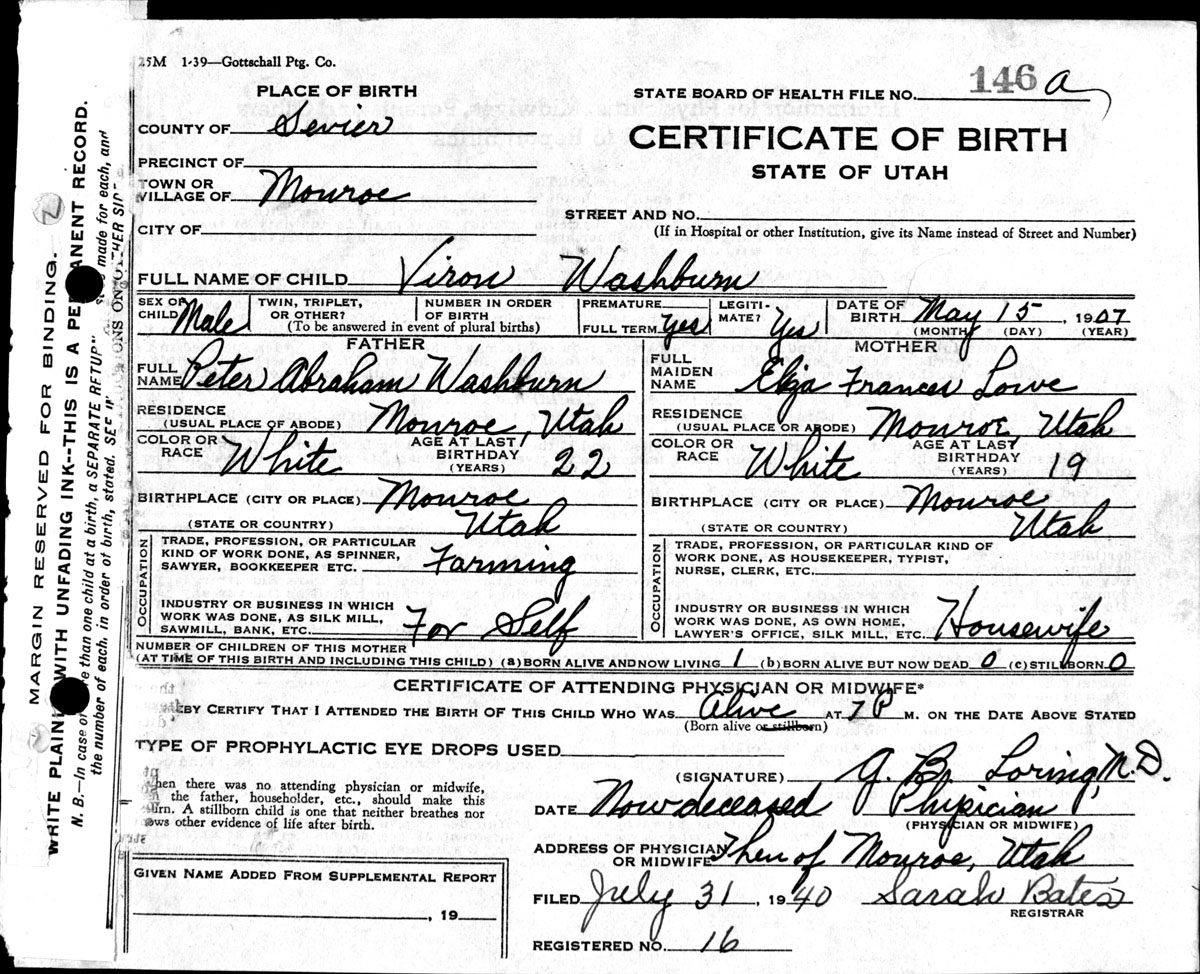 25M 1-39—Gottschall Ptg. Co.
PLACE OF BIRTH
STATE BOARD OF HEALTH FILE NO. 146 a
COUNTY OF Sevier
CERTIFICATE OF BIRTH
PRECINCT OF
STATE OF UTAH
TOWN OR
VILLAGE OF Monroe
STREET AND NO.
CITY OF
(If in Hospital or other Institution, give its Name instead of Street and Number)
FULL NAME OF CHILD Viron Washburn
SEX OF CHILD Male
TWIN, TRIPLET, OR OTHER?
NUMBER IN ORDER OF BIRTH
(To be answered in event of plural births)
PREMATURE
FULL TERM yes
LEGITI-
MATE? Yes
DATE OF BIRTH May 15, 1907
(MONTH) (DAY) (YEAR)
FATHER
FULL NAME Peter Abraham Washburn
RESIDENCE
(USUAL PLACE OF ABODE) Monroe, Utah
COLOR OR RACE White
AGE AT LAST BIRTHDAY (YEARS) 22
BIRTHPLACE (CITY OR PLACE) Monroe
(STATE OR COUNTRY) Utah
OCCUPATION
TRADE, PROFESSION, OR PARTICULAR
KIND OF WORK DONE, AS SPINNER,
SAWYER, BOOKKEEPER ETC. Farming
INDUSTRY OR BUSINESS IN WHICH
WORK WAS DONE, AS SILK MILL,
SAWMILL, BANK, ETC. For Self
MOTHER
FULL MAIDEN NAME Eliza Frances Lowe
RESIDENCE
(USUAL PLACE OR ABODE) Monroe, Utah
COLOR OR RACE White
AGE AT LAST BIRTHDAY (YEARS) 19
BIRTHPLACE (CITY OR PLACE) Monroe
(STATE OR COUNTRY) Utah
OCCUPATION
TRADE, PROFESSION, OR PARTICULAR KIND OF
WORK DONE, AS HOUSEKEEPER, TYPIST,
NURSE, CLERK, ETC.
INDUSTRY OR BUSINESS IN WHICH
WORK WAS DONE, AS OWN HOME,
LAWYER'S OFFICE, SILK MILL, ETC. Housewife
NUMBER OF CHILDREN OF THIS MOTHER
(AT TIME OF THIS BIRTH AND INCLUDING THIS CHILD) (a) BORN ALIVE AND NOW LIVING 1 (b) BORN ALIVE BUT NOW DEAD 0 (c) STILLBORN 0
CERTIFICATE OF ATTENDING PHYSICIAN OR MIDWIFE*
EBY CERTIFY THAT I ATTENDED THE BIRTH OF THIS CHILD WHO WAS Alive AT 7 P M. ON THE DATE ABOVE STATED
(Born alive or stillborn)
TYPE OF PROPHYLACTIC EYE DROPS USED
(SIGNATURE) G. B. Loring, M.D.
hen there was no attending physician or midwife,
n the father, householder, etc., should make this
urn. A stillborn child is one that neither breathes nor
ows other evidence of life after birth.
DATE Now deceased Physician
(PHYSICIAN OR MIDWIFE)
ADDRESS OF PHYSICIAN
OR MIDWIFE Then of Monroe, Utah
GIVEN NAME ADDED FROM SUPPLEMENTAL REPORT
, 19
FILED July 31, 1940 Sarah Bates
REGISTRAR
REGISTERED NO. 16
MARGIN RESERVED FOR BINDING.
WRITE PLAIN WITH UNFADING INK--THIS IS A PE ANENT RECORD.
N. B.—In case o re than one child at a birth, a SEPARATE RETUR made for each, and
the number of each, in order of birth, stated. SEE ONS ON OTHER SID